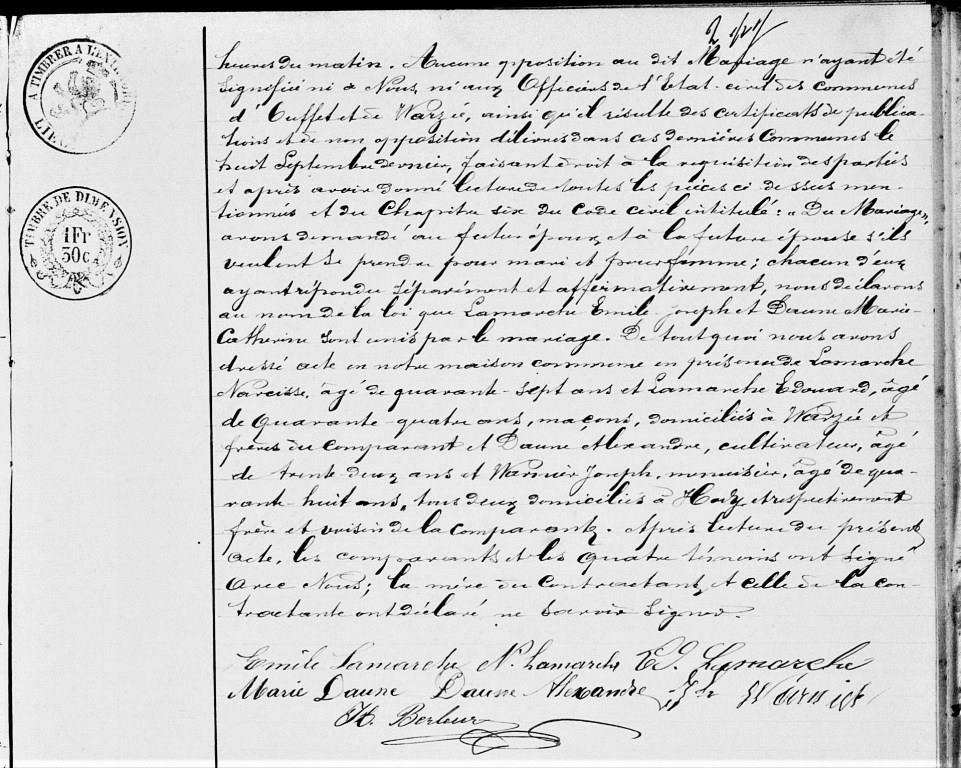 A TIMBRER A L'EX
LIE
TIMBRE DE DIMENSION
1 Fr
50 c.
heures du matin. Aucune opposition au dit Mariage n'ayant été
signifiée ni à Nous, ni aux Officiers de l'Etat-civil des communes
d'Ouffet et de Warzée, ainsi qu'il résulte des certificats de publica-
tions et de non opposition délivrés dans ces dernières Communes le
huit Septembre dernier, faisant droit à la requisition des parties
et après avoir donné lecture de toutes les pièces ci-dessus men-
tionnés et du Chapitre six du Code civil intitulé: „Du Mariage„
avons demandé au futur époux et à la future épouse s'ils
veulent se prendre pour mari et pour femme; chacun d'eux
ayant répondu séparément et affirmativement, nous déclarons
au nom de la loi que Lamarche Emile Joseph et Daune Marie-
Catherine sont unis par le mariage. De tout quoi nous avons
dressé acte en notre maison commune en présence de Lamarche
Narcisse, âgé de quarante-sept ans et Lamarche Edouard, âgé
de quarante-quatre ans, maçons, domiciliés à Warzée et
frères du comparant et Daune Alexandre, cultivateur, âgé
de trente-deux ans et Warnier Joseph, menuisier, âgé de qua-
rante-huit ans, tous deux domiciliés à Hody et respectivement
frère et voisin de la comparante. Après lecture du présent
acte, les comparants et les quatre témoins ont signé
avec Nous; la mère du contractant et celle de la con-
tractante ont déclaré ne savoir signer.
Emile Lamarche N. Lamarche Ed. Lamarche
Marie Daune Daune Alexandre
H. Berleur